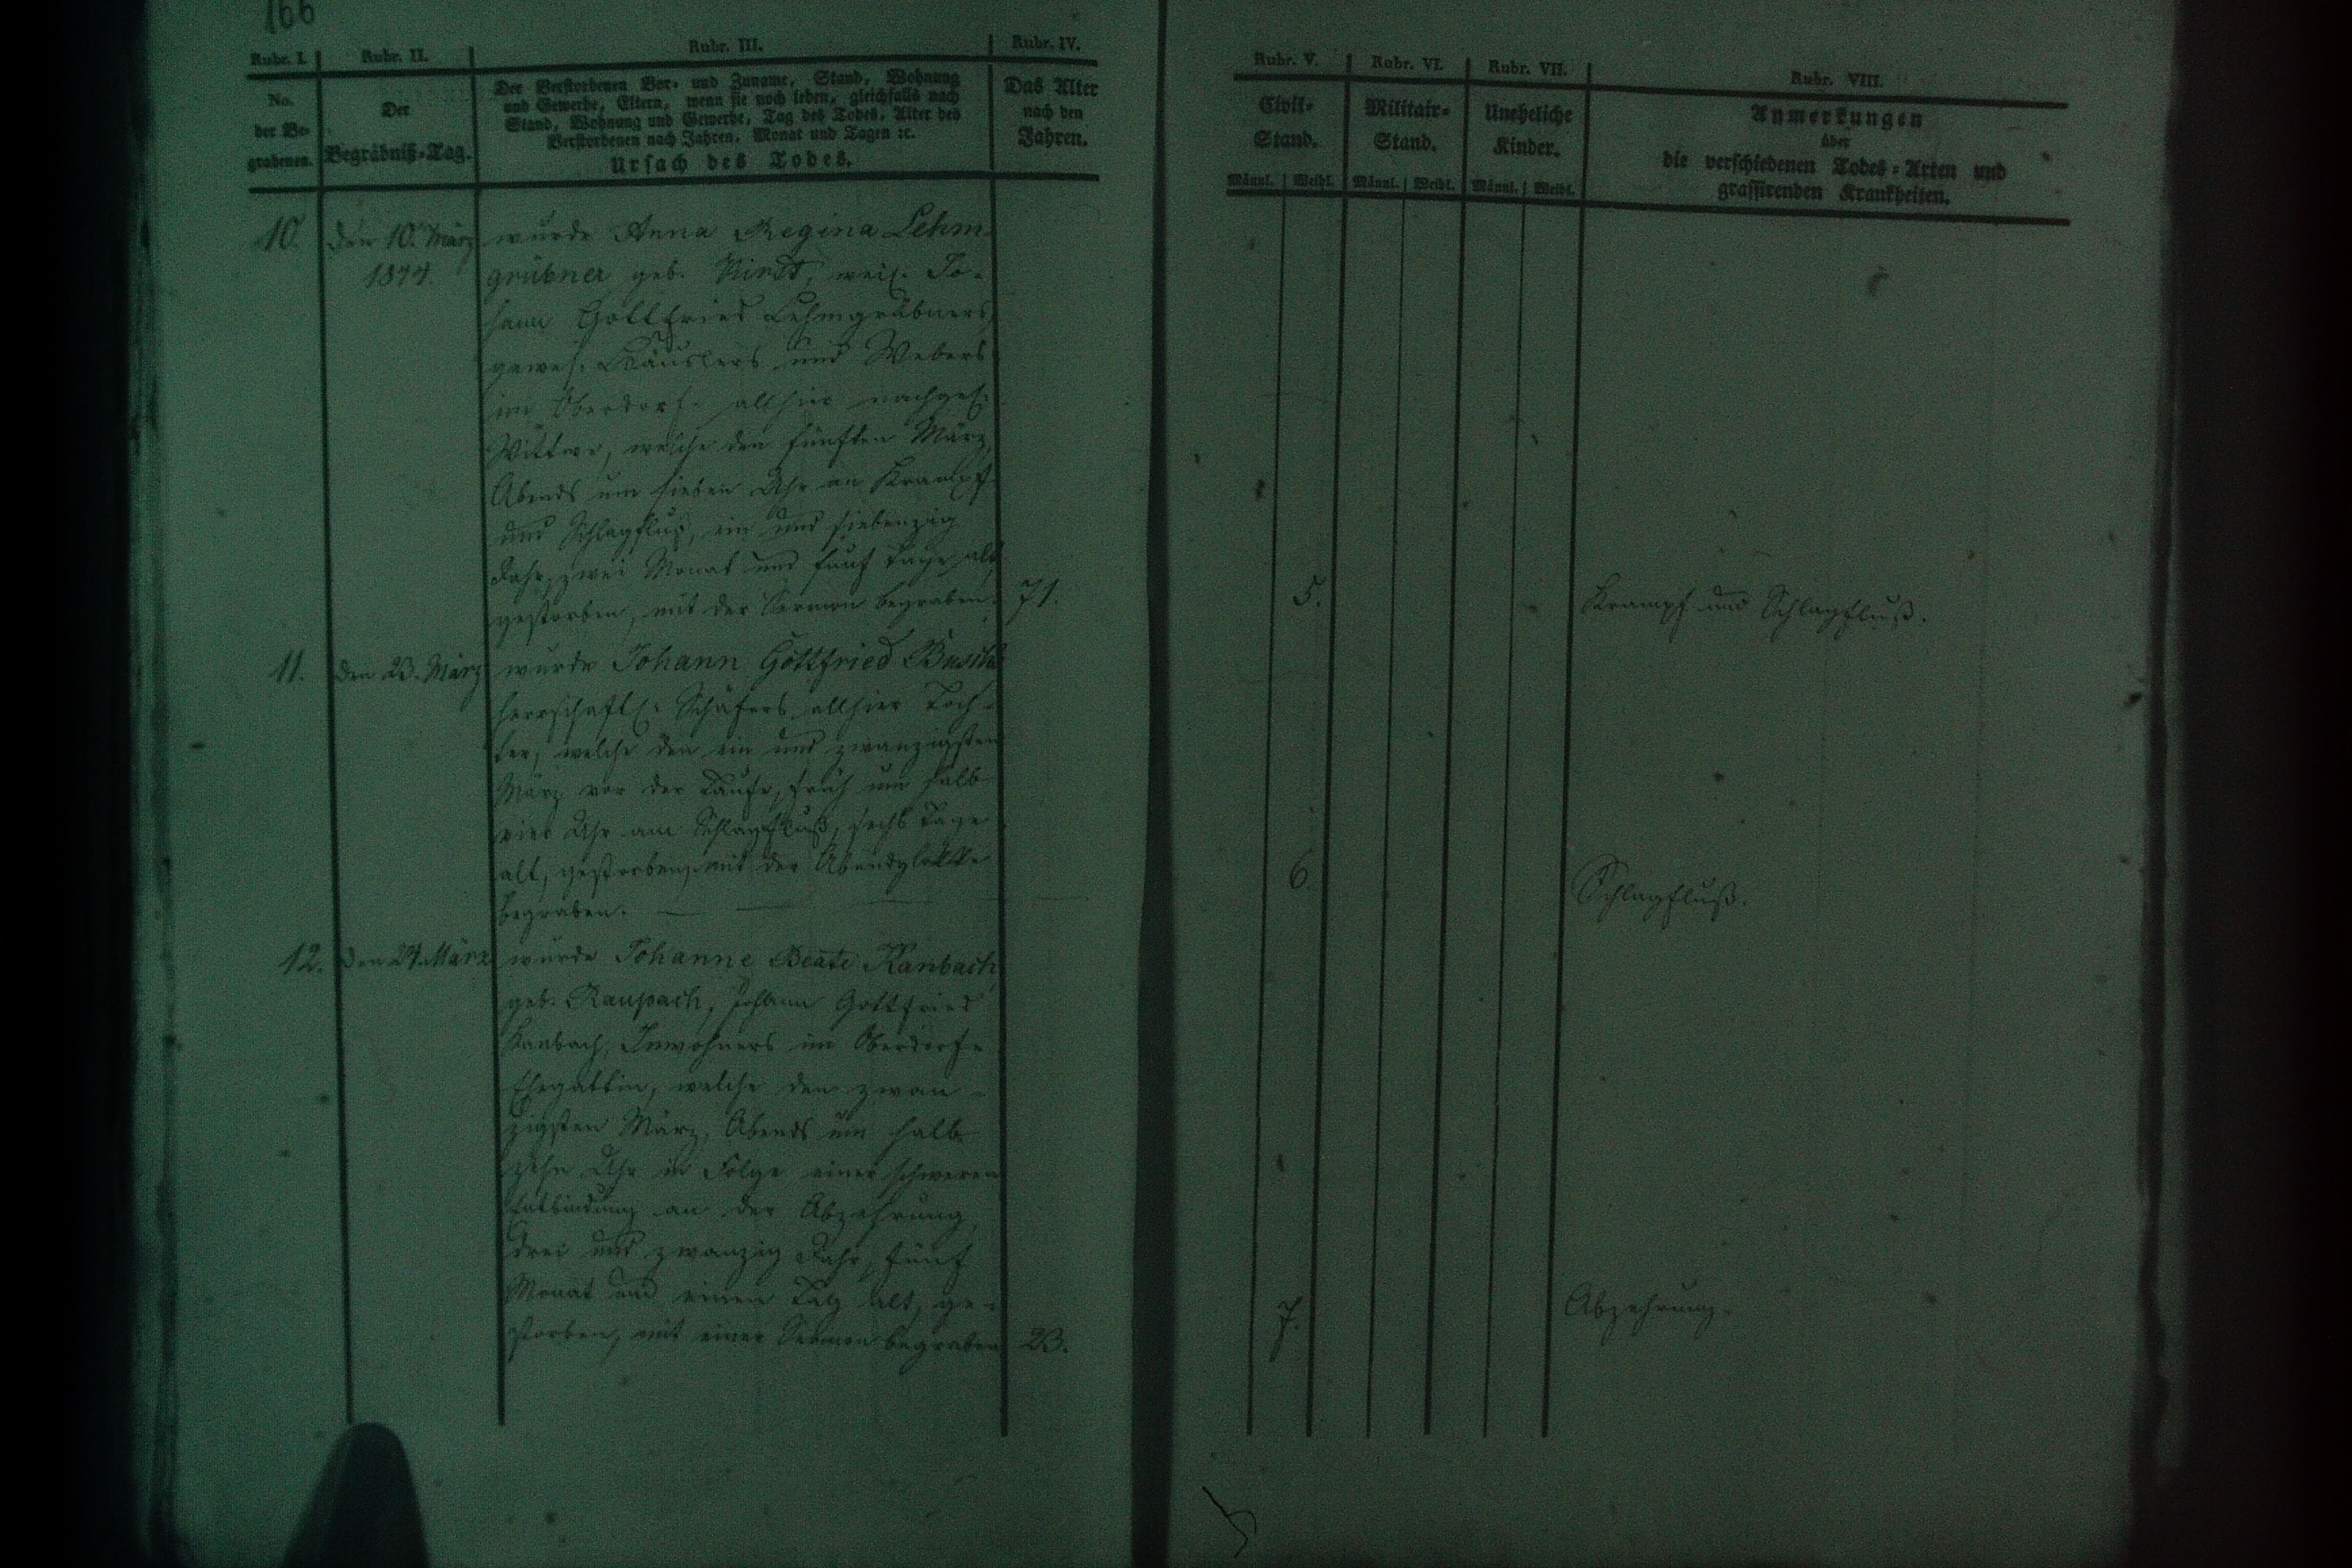 166
Rubr. I. Rubr. II. Rubr. III. Rubr. IV.
No. der Be- grabenen.
Der Begräbniß-Tag.
Der Verstorbenen Vor- und Zuname, Stand, Wohnung
und Gewerbe, Eltern, wenn sie noch leben, gleichfalls nach
Stand, Wohnung und Gewerbe, Tag des Todes, Alter des
Verstorbenen nach Jahren, Monat und Tagen ꝛc.
Ursach des Todes.
Das Alter
nach den
Jahren.
10. den 10. März wurde Anna Regina Lehm-
grübner geb. weil. Jo-
hann Gottfried Lehmgrübners
gewes. Häuslers und Webers
im Oberdorfe allhier nachgel.
Wittwe, welche den fünften März
Abends um sieben Uhr an Krampf
und Schlagfluß, ein und siebenzig
Jahr, zwei Monat und fünf Tage alt,
gestorben, mit der Sermon begraben. 71.
11. den 23. März wurde Johann Gottfried
herrschaftl. Schäfers allhier Toch-
ter, welche den ein und zwanzigsten
März vor der Taufe, früh um halb
vier Uhr am Schlagfluß, sechs Tage
alt, gestorben, mit der Abendglocke
begraben.
12. den 24. März wurde Johanne Beate Kanbach
geb. Raupach, Johann Gottfried
Kanbach, Inwohners im Oberdorfe
Ehegattin, welche den zwan-
zigsten März, Abends um halb
zehn Uhr in Folge einer schweren
Entbindung an der Abzehrung,
drei und zwanzig Jahr, fünf
Monat und einen Tag alt, ge-
storben, mit einer Sermon begraben 23.
Rubr. V. Rubr. VI. Rubr. VII. Rubr. VIII.
Civil-
Stand.
Militair-
Stand.
Uneheliche
Kinder.
Anmerkungen
über
die verschiedenen Todes-Arten und
grassirenden Krankheiten.
Männl. Weibl. Männl. Weibl. Männl. Weibl.
5. Krampf und Schlagfluß.
6. Schlagfluß.
7. Abzehrung.